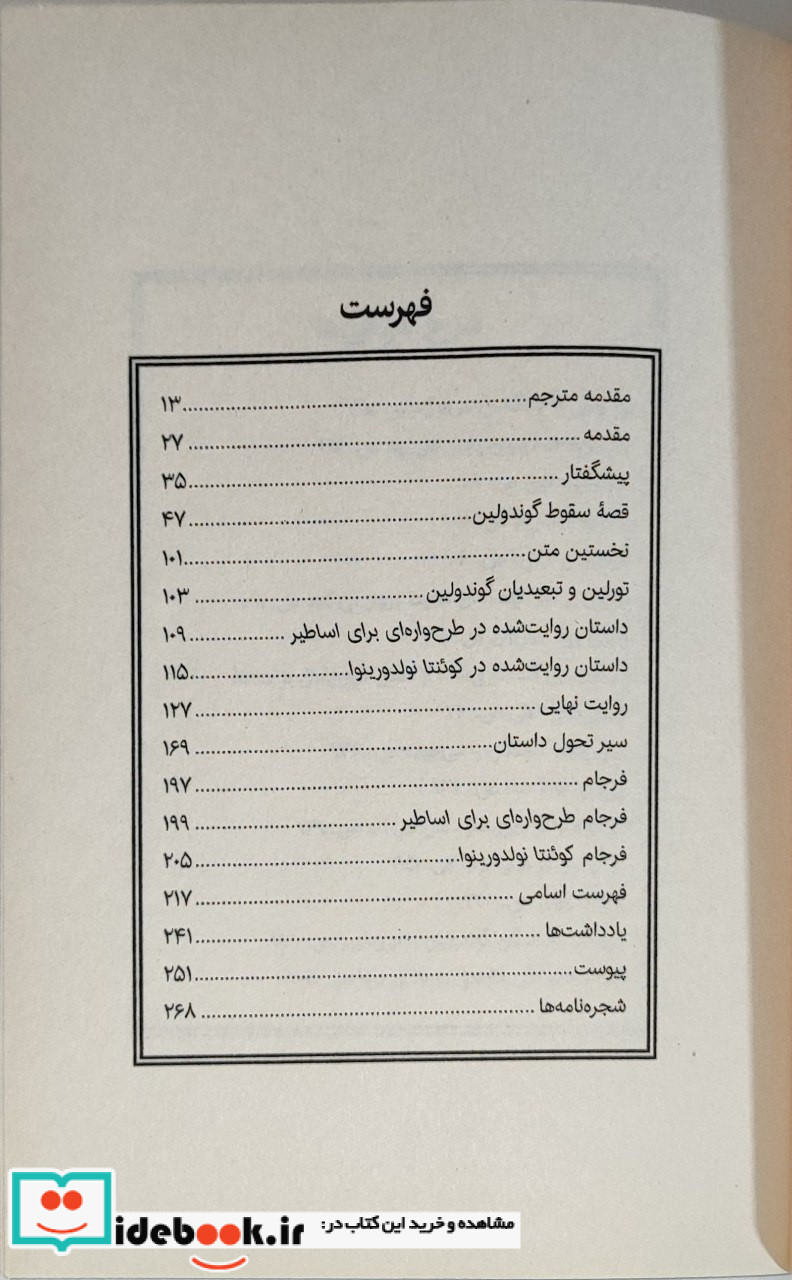 فهرست
مقدمه مترجم................................................................۱۳
مقدمه ................................................................ ۲۷
پیشگفتار ................................................................۳۵
قصهٔ سقوط گوندولین................................................................ ۴۷
نخستین متن................................................................۱۰۱
تورلین و تبعیدیان گوندولین ................................................ ۱۰۳
داستان روایت‌شده در طرح‌واره‌ای برای اساطیر .................. ۱۰۹
داستان روایت‌شده در کوئنتا نولدورینوا..............................۱۱۵
روایت نهایی ................................................................ ۱۲۷
سیر تحول داستان................................................................ ۱۶۹
فرجام ................................................................ ۱۹۷
فرجام طرح‌واره‌ای برای اساطیر ...................................... ۱۹۹
فرجام کوئنتا نولدورینوا................................................ ۲۰۵
فهرست اسامی ................................................................ ۲۱۷
یادداشت‌ها ................................................................ ۲۴۱
پیوست................................................................ ۲۵۱
شجره‌نامه‌ها ................................................................ ۲۶۸
idebook.ir مشاهده و خرید این کتاب در: